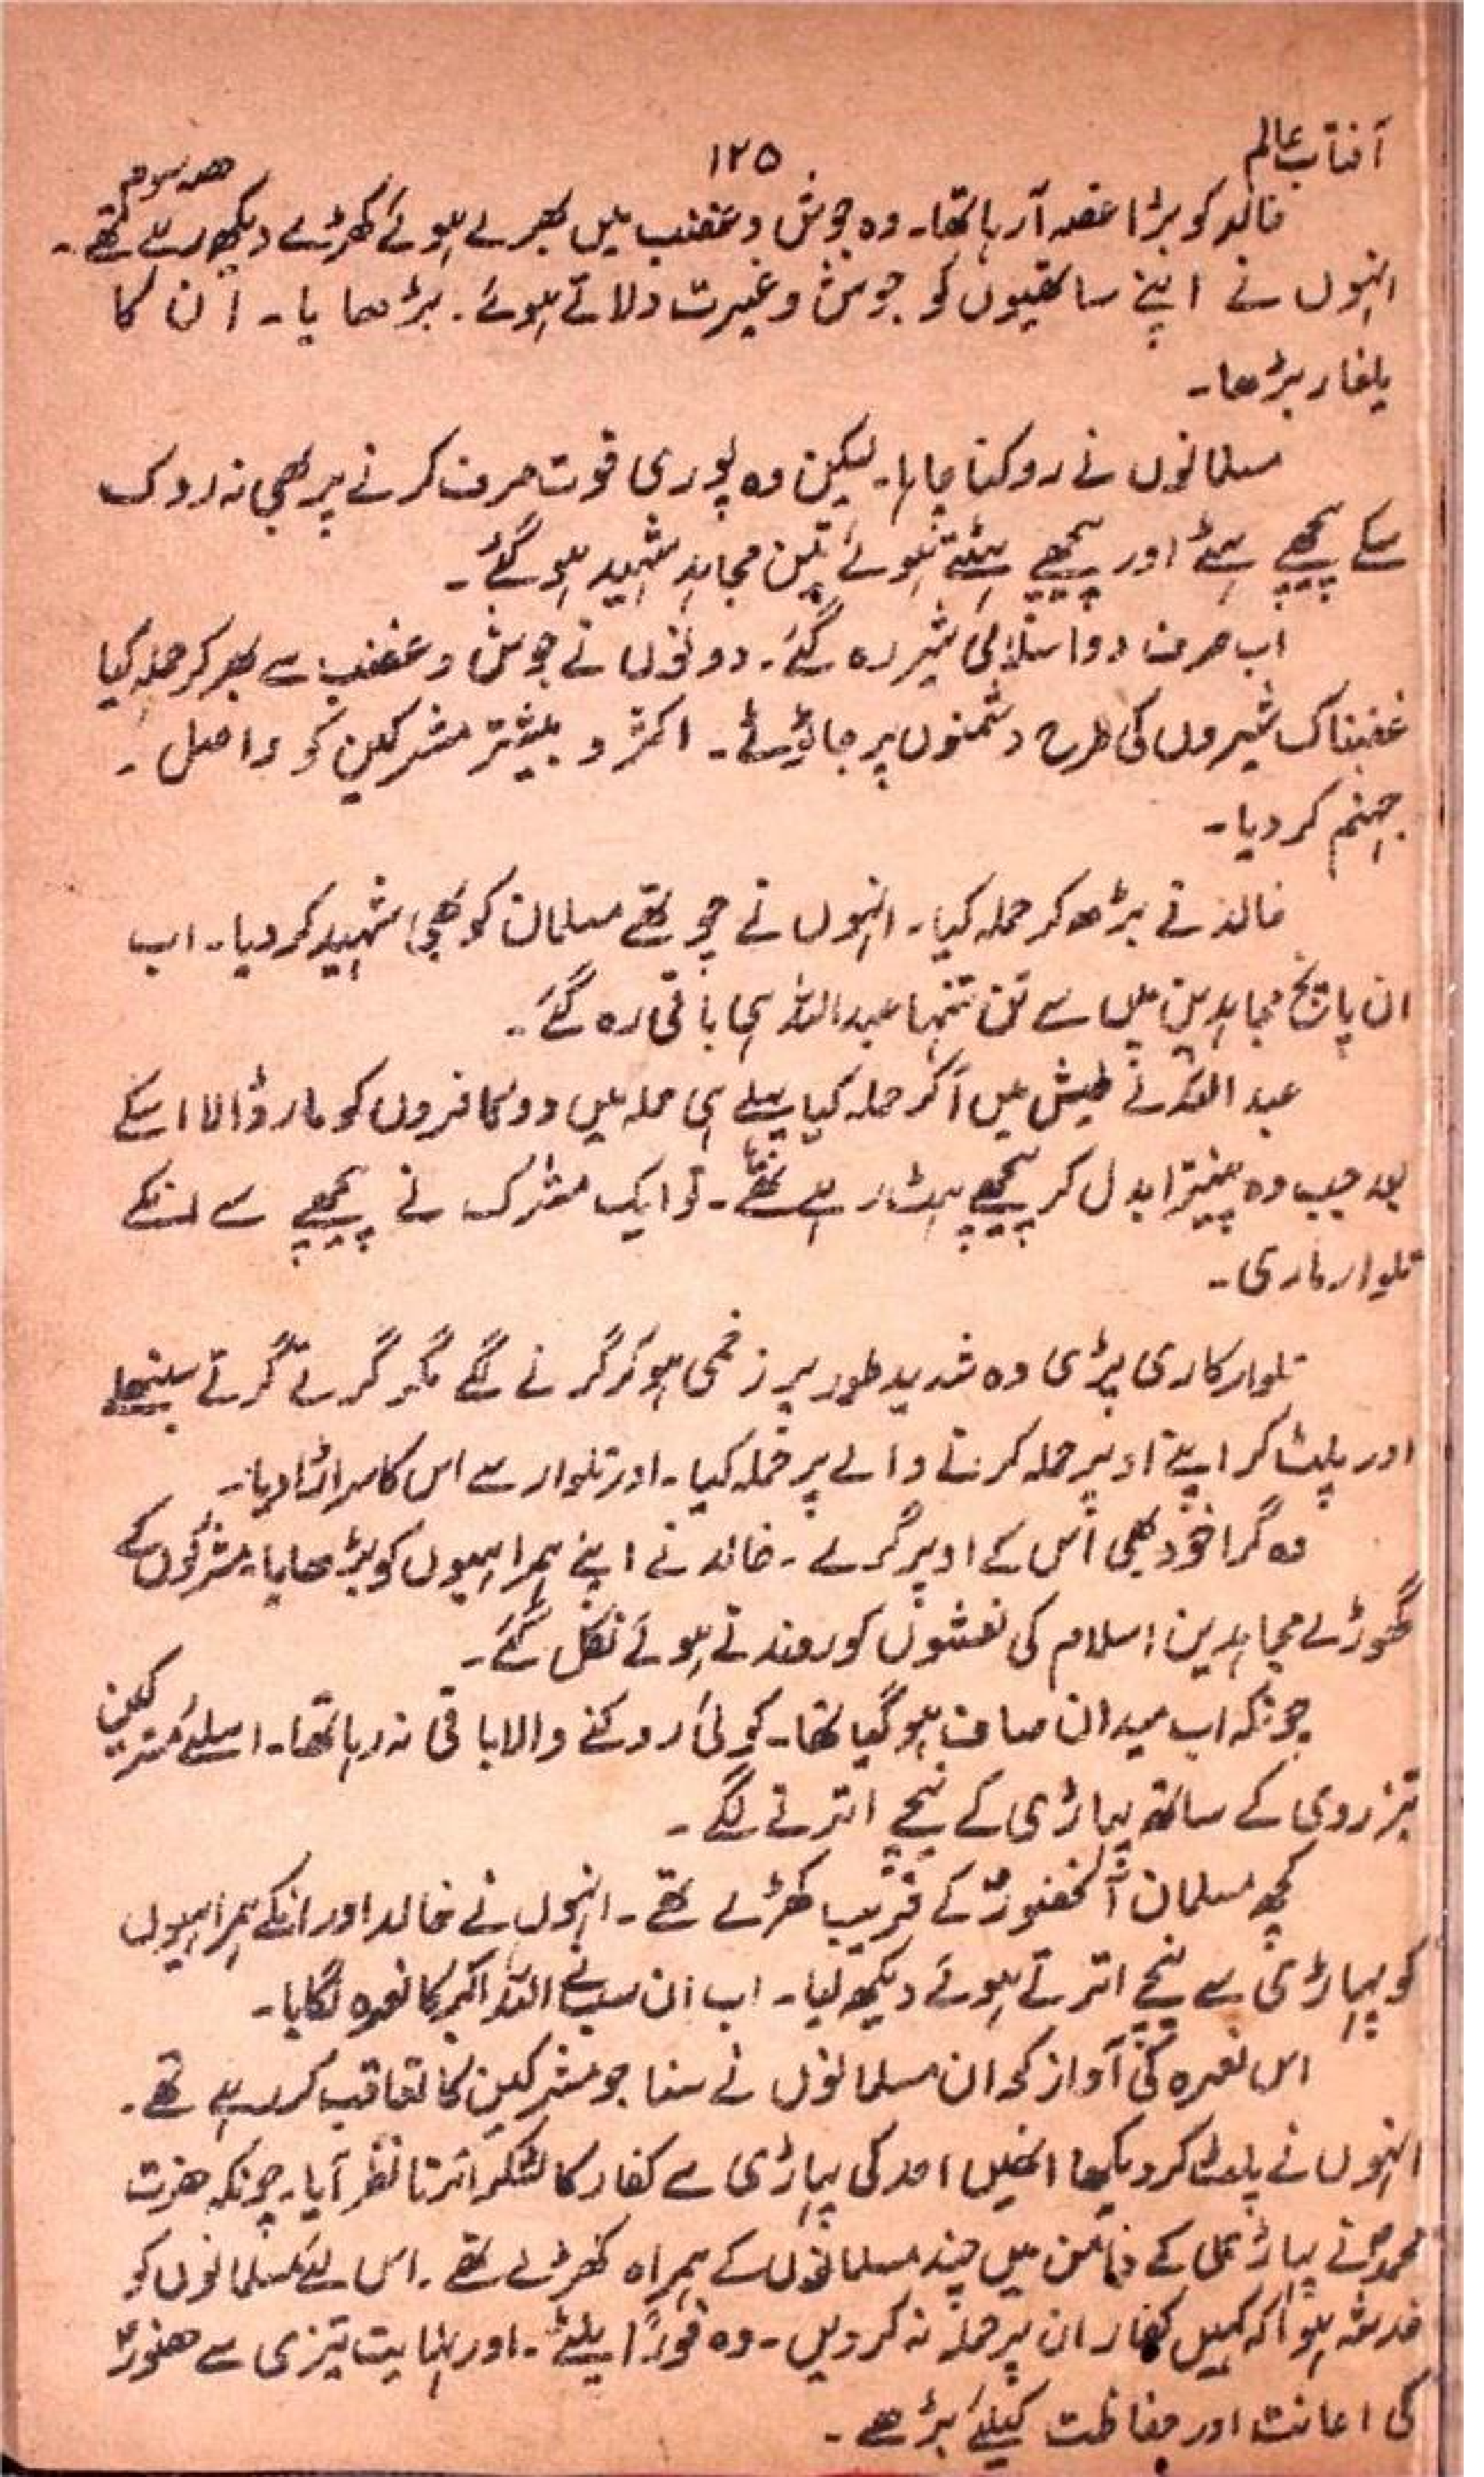 آفتاب عالم
۱۲۵
حصہ سوم
خالد کو بڑا غصہ آرہا تھا۔ وہ جوش و غضب میں بھرے ہوئے کھڑے دیکھ رہے تھے۔
انہوں نے اپنے ساتھیوں کو جوش و غیرت دلاتے ہوئے۔ بڑھایا۔ اُن کا
یلغار بڑھا۔
مسلمانوں نے روکنا چاہا۔ لیکن وہ پوری قوت صرف کرنے پر بھی نہ روک
سکے پیچھے ہٹے اور پیچھے ہٹتے ہوئے تین مجاہد شہید ہو گئے۔
اب صرف دو اسلامی شیر رہ گئے۔ دونوں نے جوش و غضب سے بھر کر حملہ کیا
غضبناک شیروں کی طرح دشمنوں پر جا پڑے۔ اکثر و بیشتر مشرکین کو واصل
جہنم کر دیا۔
خالد نے بڑھ کر حملہ کیا۔ انہوں نے چوتھے مسلمان کو بھی شہید کر دیا۔ اب
ان پانچ مجاہدین میں سے تن تنہا عبداللہ ہی باقی رہ گئے۔
عبداللہ نے طیش میں آکر حملہ کیا پہلے ہی حملہ میں دو کافروں کو مار ڈالا اسکے
بعد جب وہ پینترا بدل کر پیچھے ہٹ رہے تھے۔ تو ایک مشرک نے پیچھے سے انکے
تلوار ماری۔
تلوار کاری پڑی وہ شدید طور پر زخمی ہو کر گرنے لگے مگر گرتے گرتے سنبھلے
اور پلٹ کر اپنے اوپر حملہ کرنے والے پر حملہ کیا۔ اور تلوار سے اس کا سر اڑا دیا۔
وہ گرا خود بھی اُس کے اوپر گرے۔ خالد نے اپنے ہمراہیوں کو بڑھایا۔ مشرکوں کے
گھوڑے مجاہدین اسلام کی نعشوں کو روندتے ہوئے نکل گئے۔
چونکہ اب میدان صاف ہو گیا تھا۔ کوئی روکنے والا باقی نہ رہا تھا۔ اسلئے مشرکین
تیز روی کے ساتھ پہاڑی کے نیچے اترنے لگے۔
کچھ مسلمان آنحضورؐ کے قریب کھڑے تھے۔ انہوں نے خالد اور انکے ہمراہیوں
کو پہاڑی سے نیچے اترتے ہوئے دیکھ لیا۔ اب ان سب نے اللہ اکبر کا نعرہ لگایا۔
اس نعرہ کی آواز کو ان مسلمانوں نے سنا جو مشرکین کا تعاقب کر رہے تھے۔
انہوں نے پلٹ کر دیکھا انھیں احد کی پہاڑی سے کفار کا لشکر اترتا نظر آیا۔ چونکہ حضرت
محمدؐ نے پہاڑی کے دامن میں چند مسلمانوں کے ہمراہ کھڑے تھے۔ اس لئے مسلمانوں کو
خدشہ ہوا کہ کہیں کفار ان پر حملہ نہ کر دیں۔ وہ فوراً پلٹے۔ اور نہایت تیزی سے حضورؐ
کی اعانت اور حفاظت کیلئے بڑھے۔